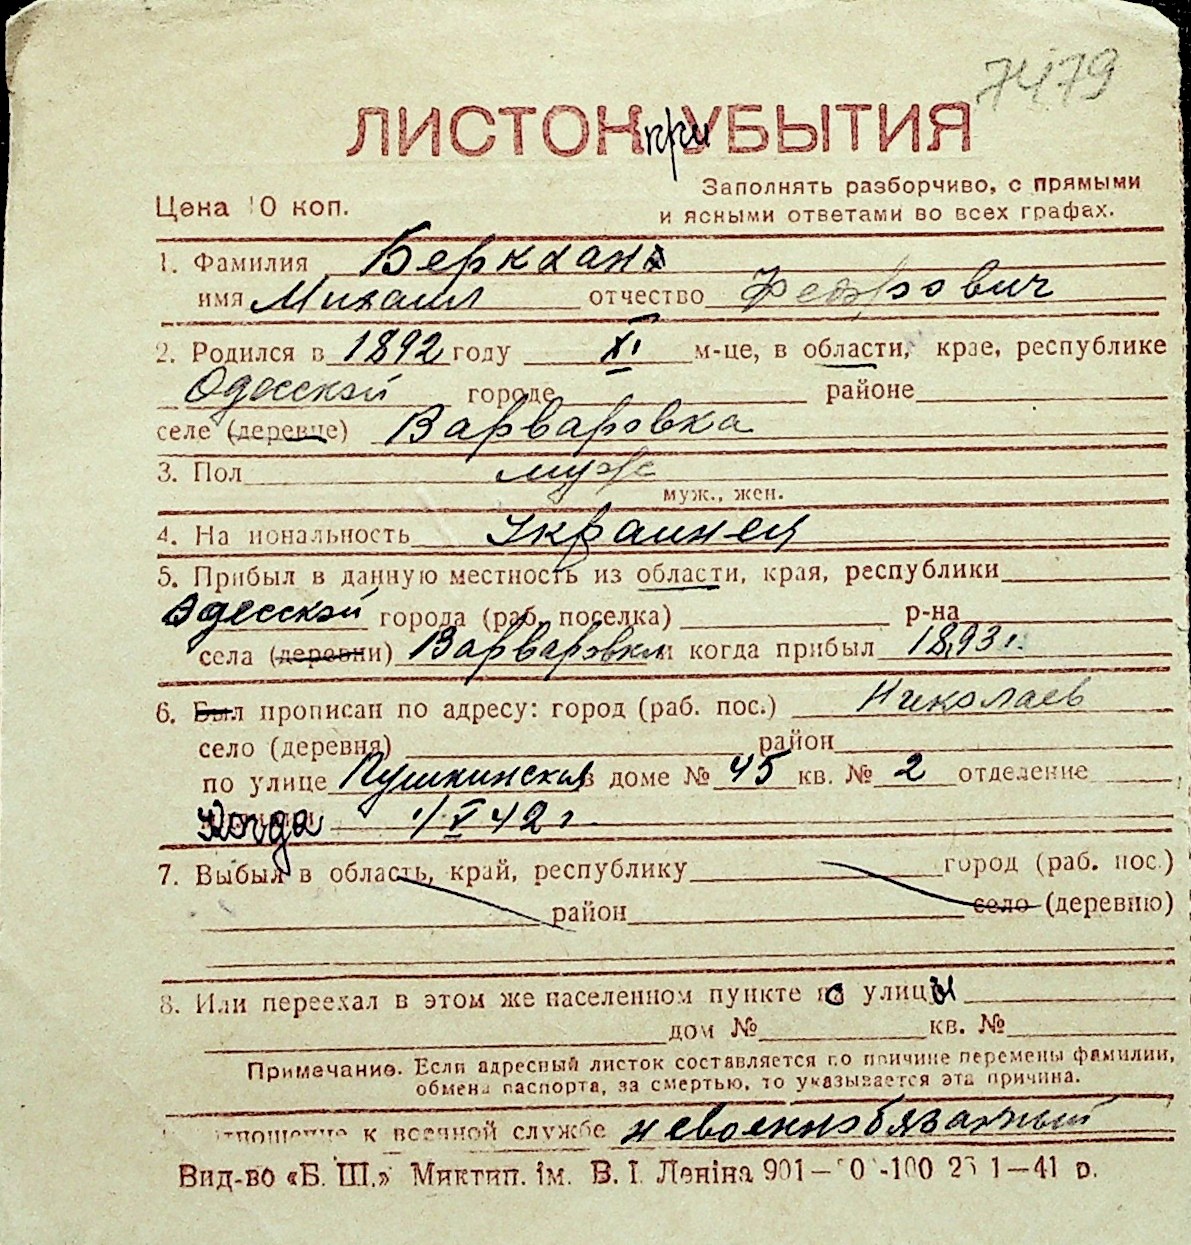 7479
ЛИСТОК при УБЫТИЯ
Цена 10 коп.
Заполнять разборчиво, с прямыми
и ясными ответами во всех графах.
1. Фамилия Беркхан
имя Михаил отчество Федорович
2. Родился в 1892 году XI м-це, в области, крае, республике
Одесской городе районе
селе (деревне) Варваровка
3. Пол муж
муж., жен.
4. Национальность Украинец
5. Прибыл в данную местность из области, края, республики
Одесской города (раб. поселка) р-на
села (деревни) Варваровки и когда прибыл 1893 г.
6. Был прописан по адресу: город (раб. пос.) Николаев
село (деревня) район
по улице Пушкинская в доме № 45 кв. № 2 отделение
Когда 1/V 42 г.
7. Выбыл в область, край, республику город (раб. пос.)
район село (деревню)
8. Или переехал в этом же населенном пункте с улицы
дом № кв. №
Примечание. Если адресный листок составляется по причине перемены фамилии,
обмена паспорта, за смертью, то указывается эта причина.
отношение к военной службе невоеннобязанный
Вид-во «Б. Ш.» Миктип. ім. В. І. Леніна 901— 0 -100 1—41 р.